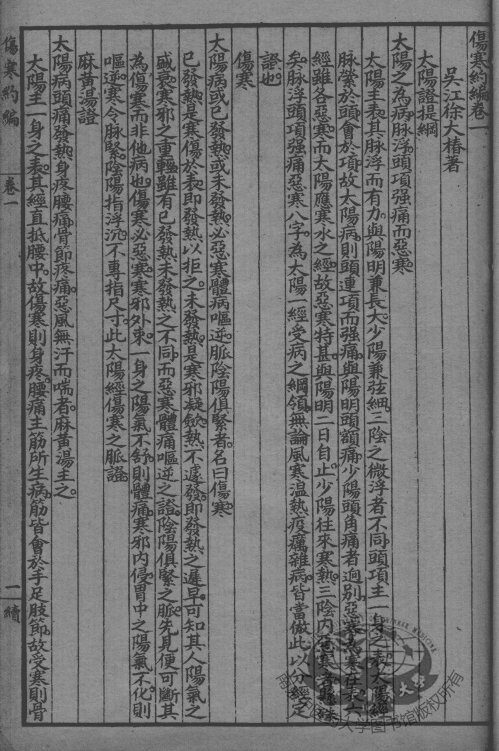 傷寒約編卷一
吳江徐大椿著
太陽證提綱
太陽之為病脈浮頭項强痛而惡寒
太陽主表其脉浮而有力與陽明兼長大少陽兼弦細三陰之微浮者不同頭項主一身之表太陽經
脉縈於頭會於項故太陽病則頭連項而强痛與陽明頭額痛少陽頭角痛者逈别惡寒為寒在表六
經雖各惡寒而太陽應寒水之經故惡寒特甚與陽明二日自止少陽往來寒熱三陰内惡寒者懸殊
矣脉浮頭項强痛惡寒八字為太陽一經受病之綱領無論風寒温熱疫癘雜病皆當倣此以分經定
證也
傷寒
太陽病或已發熱或未發熱必惡寒體病嘔逆脈陰陽俱緊者名曰傷寒
已發熱是寒傷於表即發熱以拒之未發熱是寒邪凝斂熱不遽發即發熱之遲早可知其人陽氣之
盛衰寒邪之重輕雖有已發熱未發熱之不同而惡寒體痛嘔逆之證陰陽俱緊之脈先見便可斷其
為傷寒而非他病也傷寒必惡寒寒邪外束一身之陽氣不舒則體痛寒邪内侵胃中之陽氣不化則
嘔逆寒令脉緊陰陽指浮沉不專指尺寸此太陽經傷寒之脈證
麻黃湯證
太陽病頭痛發熱身疼腰痛骨節疼痛惡風無汗而喘者麻黃湯主之
太陽主一身之表其經直抵腰中故傷寒則身疼腰痛主筋所生病筋皆會於手足肢節故受寒則骨
傷寒約編
卷一
一
續